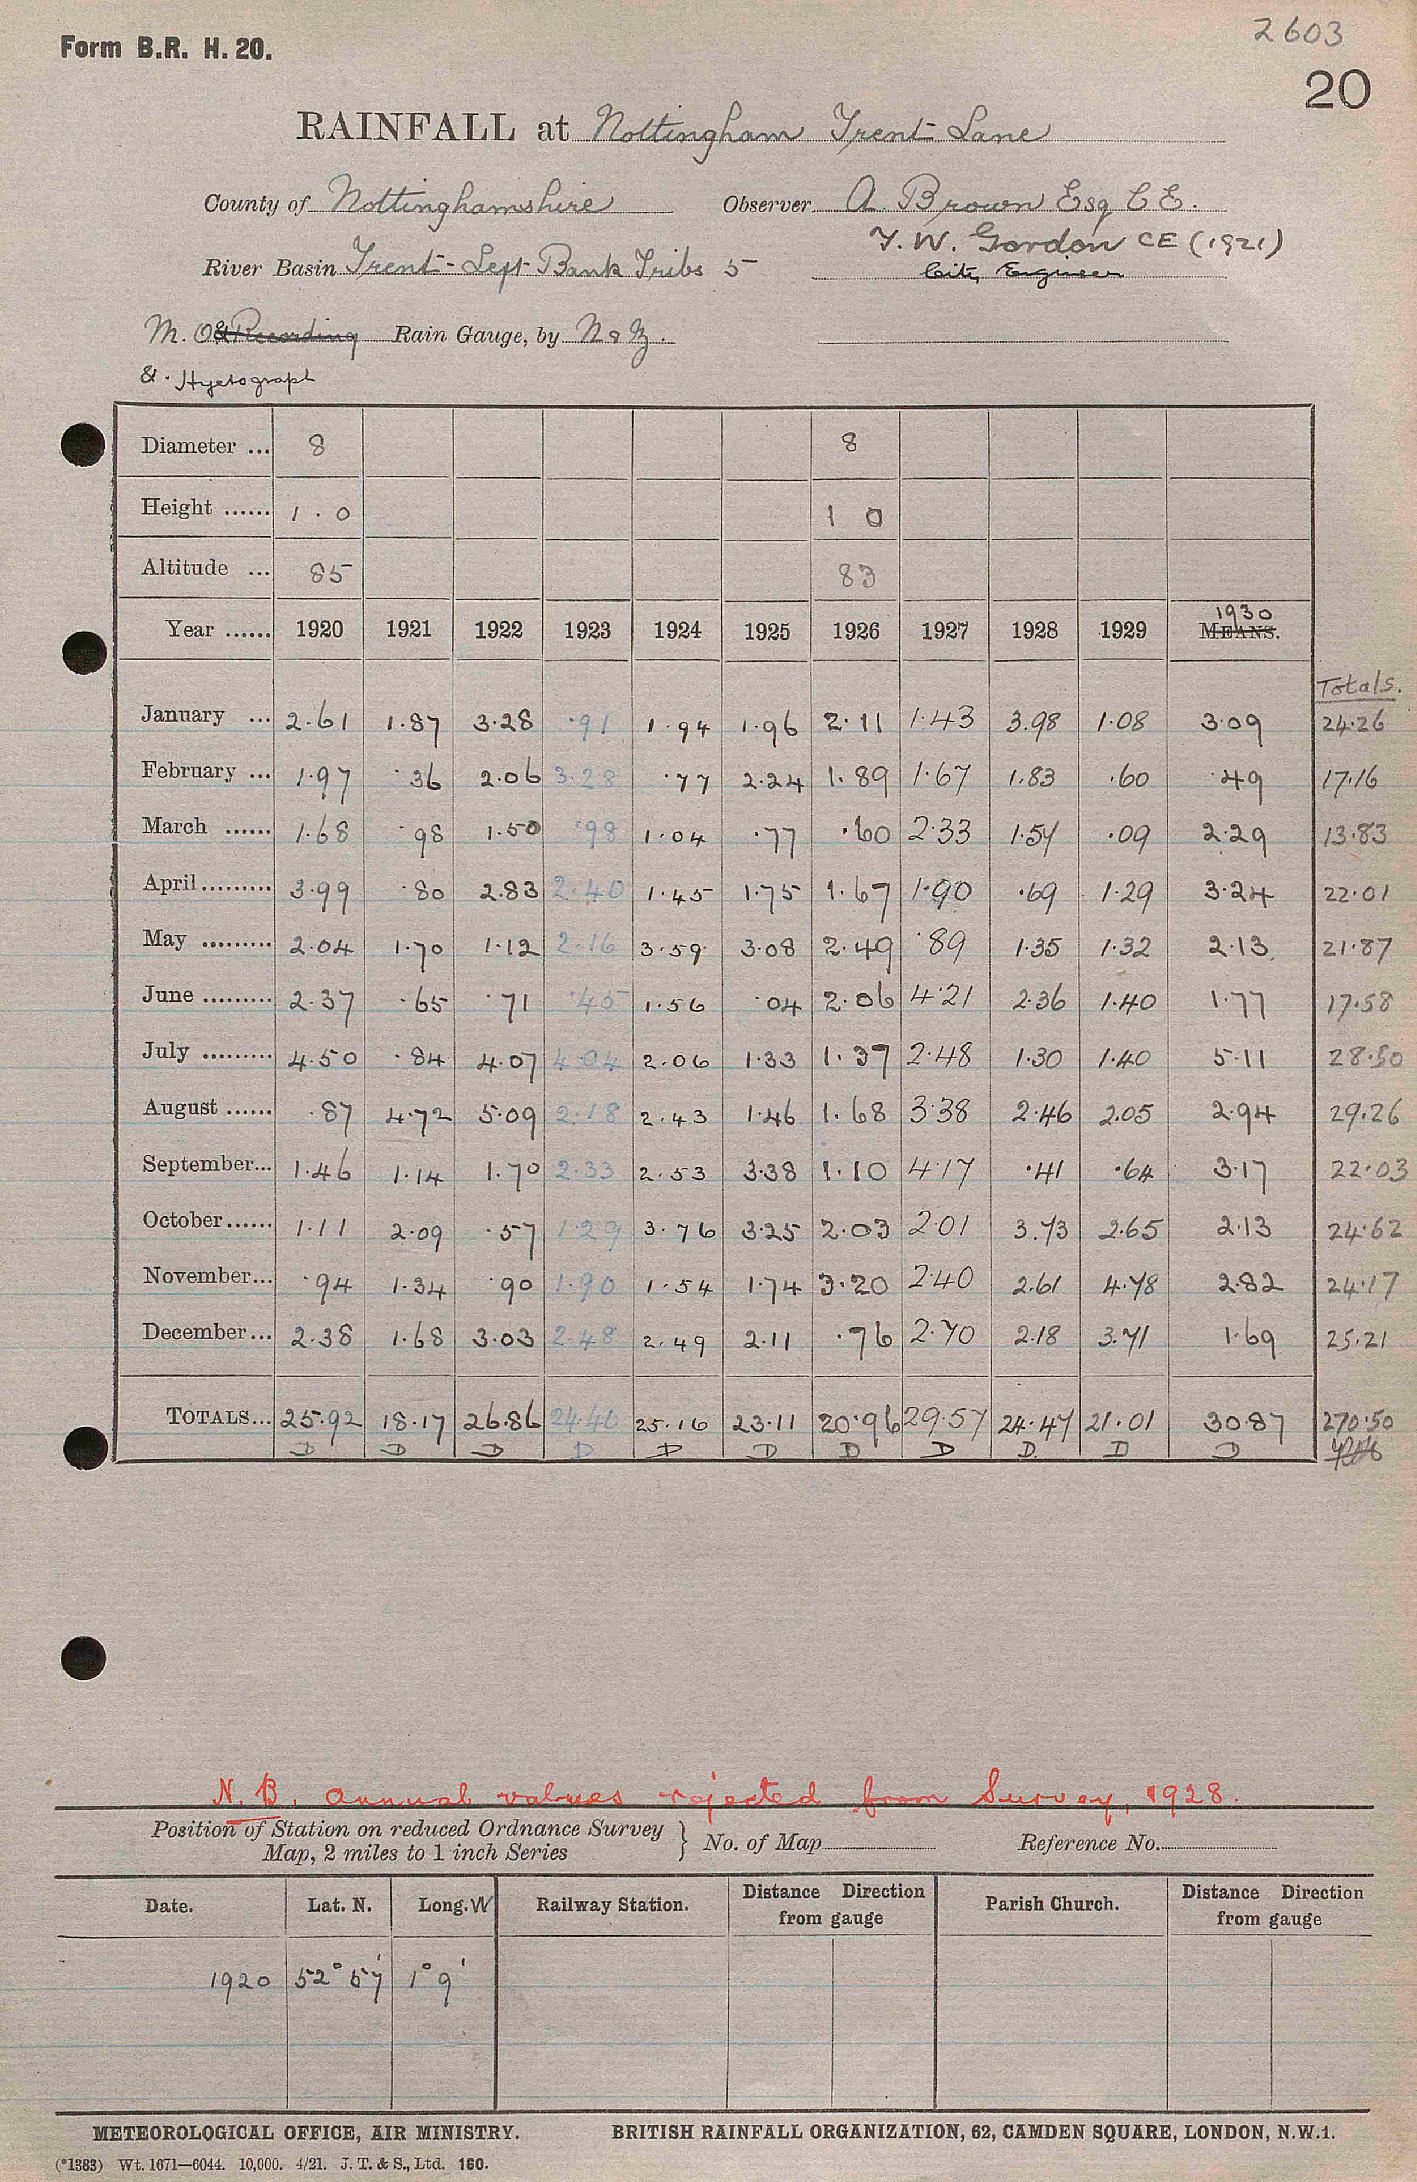 2603
Form B.R. H. 20.
20
RAINFALL at Nottingham Trent Lane
County of Nottinghamshire Observer A Brown Esq C.E.
T. W. Gordon CE (1921)
River Basin Trent - Left Bank Tribs 5 City Engineer
M.O. & Recording Rain Gauge, by N & Z.
& Hyetograph
Diameter ... 8 8
Height ...... 1 . 0 1 0
Altitude ... 85 83
1930
Year ...... 1920 1921 1922 1923 1924 1925 1926 1927 1928 1929 MEANS.
Totals.
January ... 2.61 1.87 3.28 .91 1.94 1.96 2.11 1.43 3.98 1.08 3.09 24.26
February ... 1.97 .36 2.06 3.28 .77 2.24 1.89 1.67 1.83 .60 .49 17.16
March ...... 1.68 .98 1.50 .98 1.04 .77 .60 2.33 1.57 .09 2.29 13.83
April ......... 3.99 .80 2.83 2.40 1.45 1.75 1.67 1.90 .69 1.29 3.24 22.01
May ......... 2.04 1.70 1.12 2.16 3.59 3.08 2.49 .89 1.35 1.32 2.13 21.87
June ......... 2.37 .65 .71 .45 1.56 .04 2.06 4.21 2.36 1.40 1.77 17.58
July ......... 4.50 .84 4.07 4.04 2.06 1.33 1.37 2.48 1.30 1.40 5.11 28.50
August ...... .87 4.72 5.09 2.18 2.43 1.46 1.68 3.38 2.46 2.05 2.94 29.26
September... 1.46 1.14 1.70 2.33 2.53 3.38 1.10 4.17 .41 .64 3.17 22.03
October...... 1.11 2.09 .57 1.29 3.76 3.25 2.03 2.01 3.73 2.65 2.13 24.62
November... .94 1.34 .90 1.90 1.54 1.74 3.20 2.40 2.61 4.78 2.82 24.17
December... 2.38 1.68 3.03 2.48 2.49 2.11 .76 2.70 2.18 3.71 1.69 25.21
TOTALS... 25.92 18.17 26.86 24.40 25.16 23.11 20.96 29.57 24.47 21.01 30.87 270.50
D D D D D D D D D D D
N.B. Annual values rejected from Survey, 1928.
Position of Station on reduced Ordnance Survey
Map, 2 miles to 1 inch Series } No. of Map Reference No.
Date. Lat. N. Long. W Railway Station. Distance Direction from gauge Parish Church. Distance Direction from gauge
1920 52° 57' 1° 9'
METEOROLOGICAL OFFICE, AIR MINISTRY. BRITISH RAINFALL ORGANIZATION, 62, CAMDEN SQUARE, LONDON, N.W.1.
(*1383) Wt. 1671—6044. 10,000. 4/21. J. T. & S., Ltd. 160.